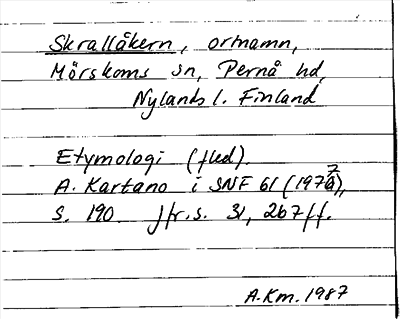 Skrallåkern, ortnamn,
Mörskoms sn, Pernå hd,
Nylands l. Finland
Etymologi (fled).
A. Kartano i SNF 61 (1977),
s. 190. Jfr. s. 31, 267 ff.
A.Km. 1987